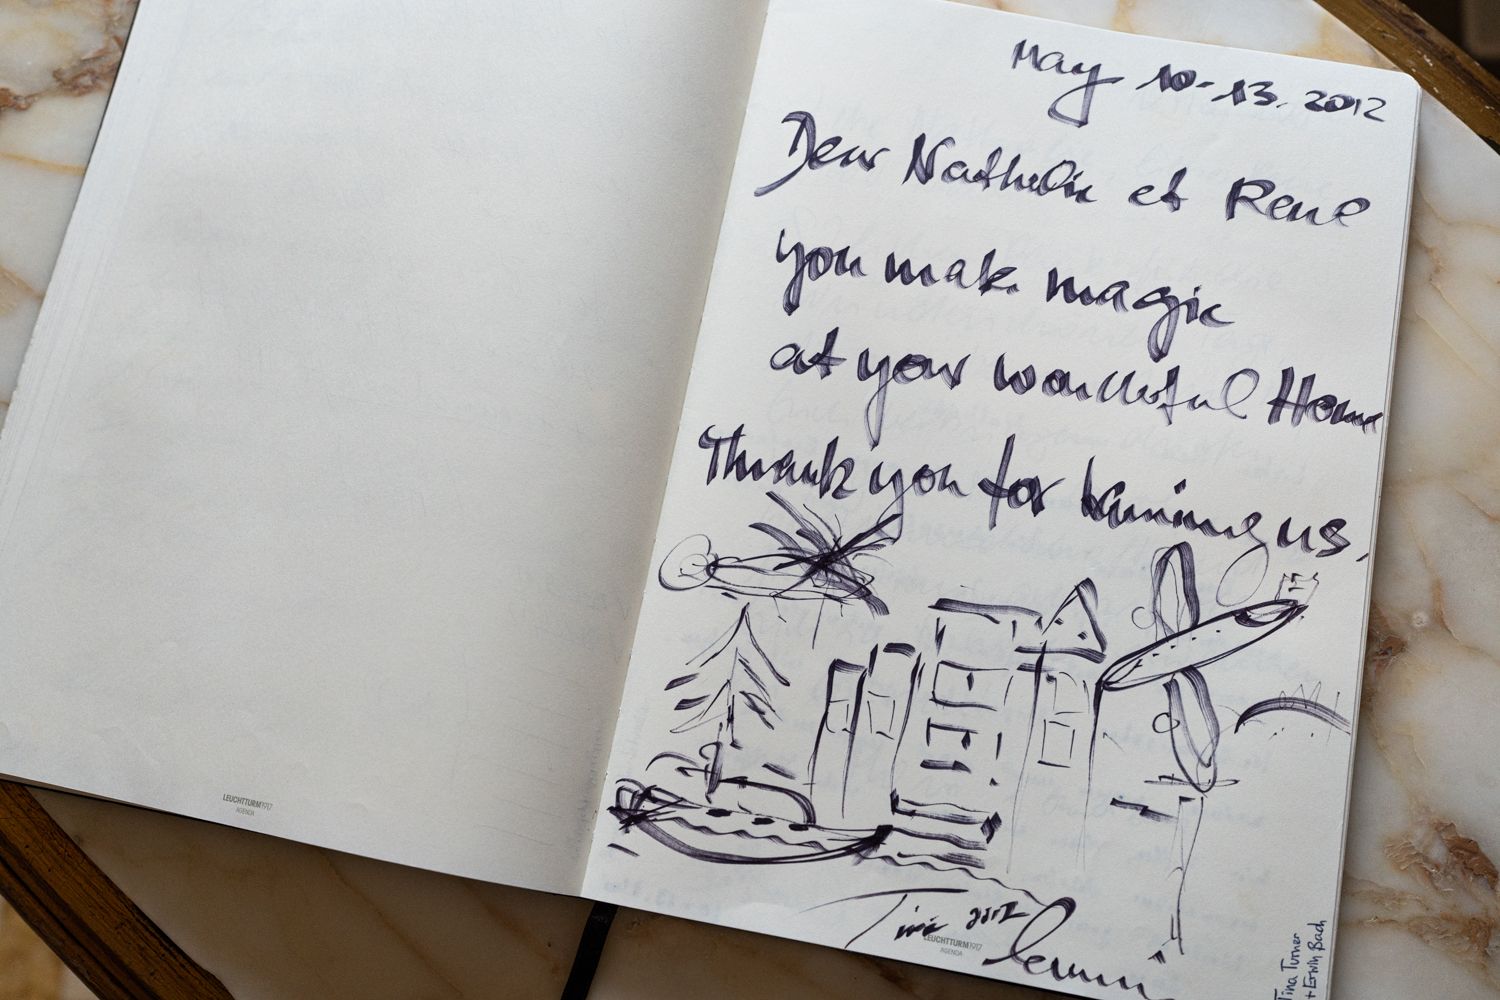 May 10-13. 2012
Dear Nathalie et René
you make magic
at your wonderful Home
Thank you for having us,
Tina 2012
LEUCHTTURM1917
AGENDA
LEUCHTTURM1917
AGENDA
Tina Turner
+ Erwin Bach